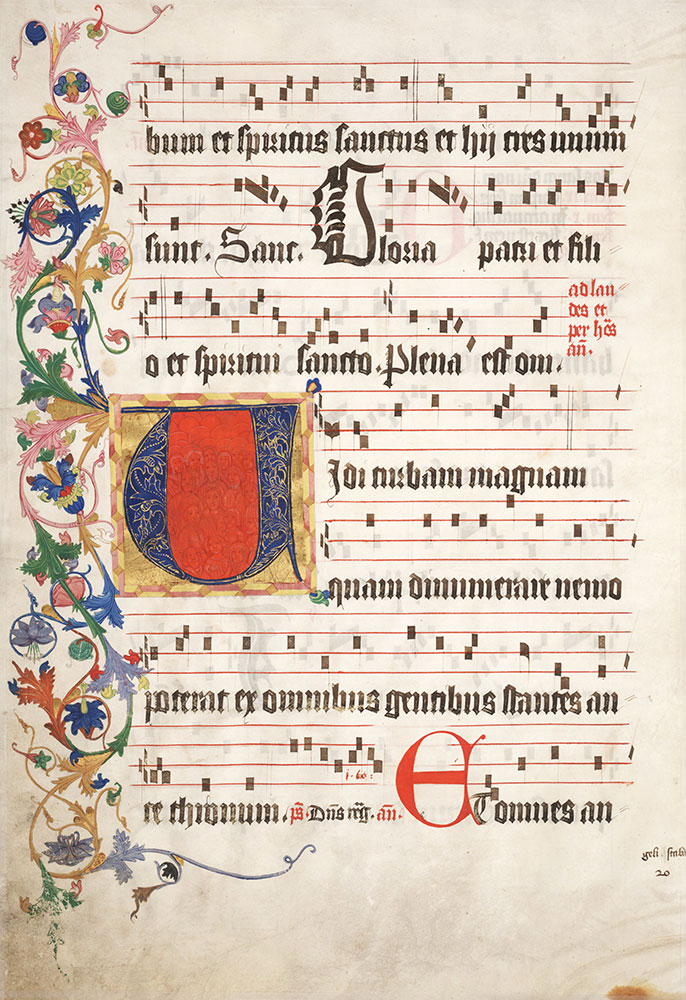 bum et spiritus sanctus et hij tres unum
sunt. Sanc. Gloria patri et fili
o et spiritui sancto. Plena est om.
ad lau
des et
per ho͞s
an̄.
Vidi turbam magnam
quam dinumerare nemo
poterat ex omnibus gentibus stantes an
te thronum. ps̄ Dn̄s reg̃. an̄. Et omnes an
geli. stab
20